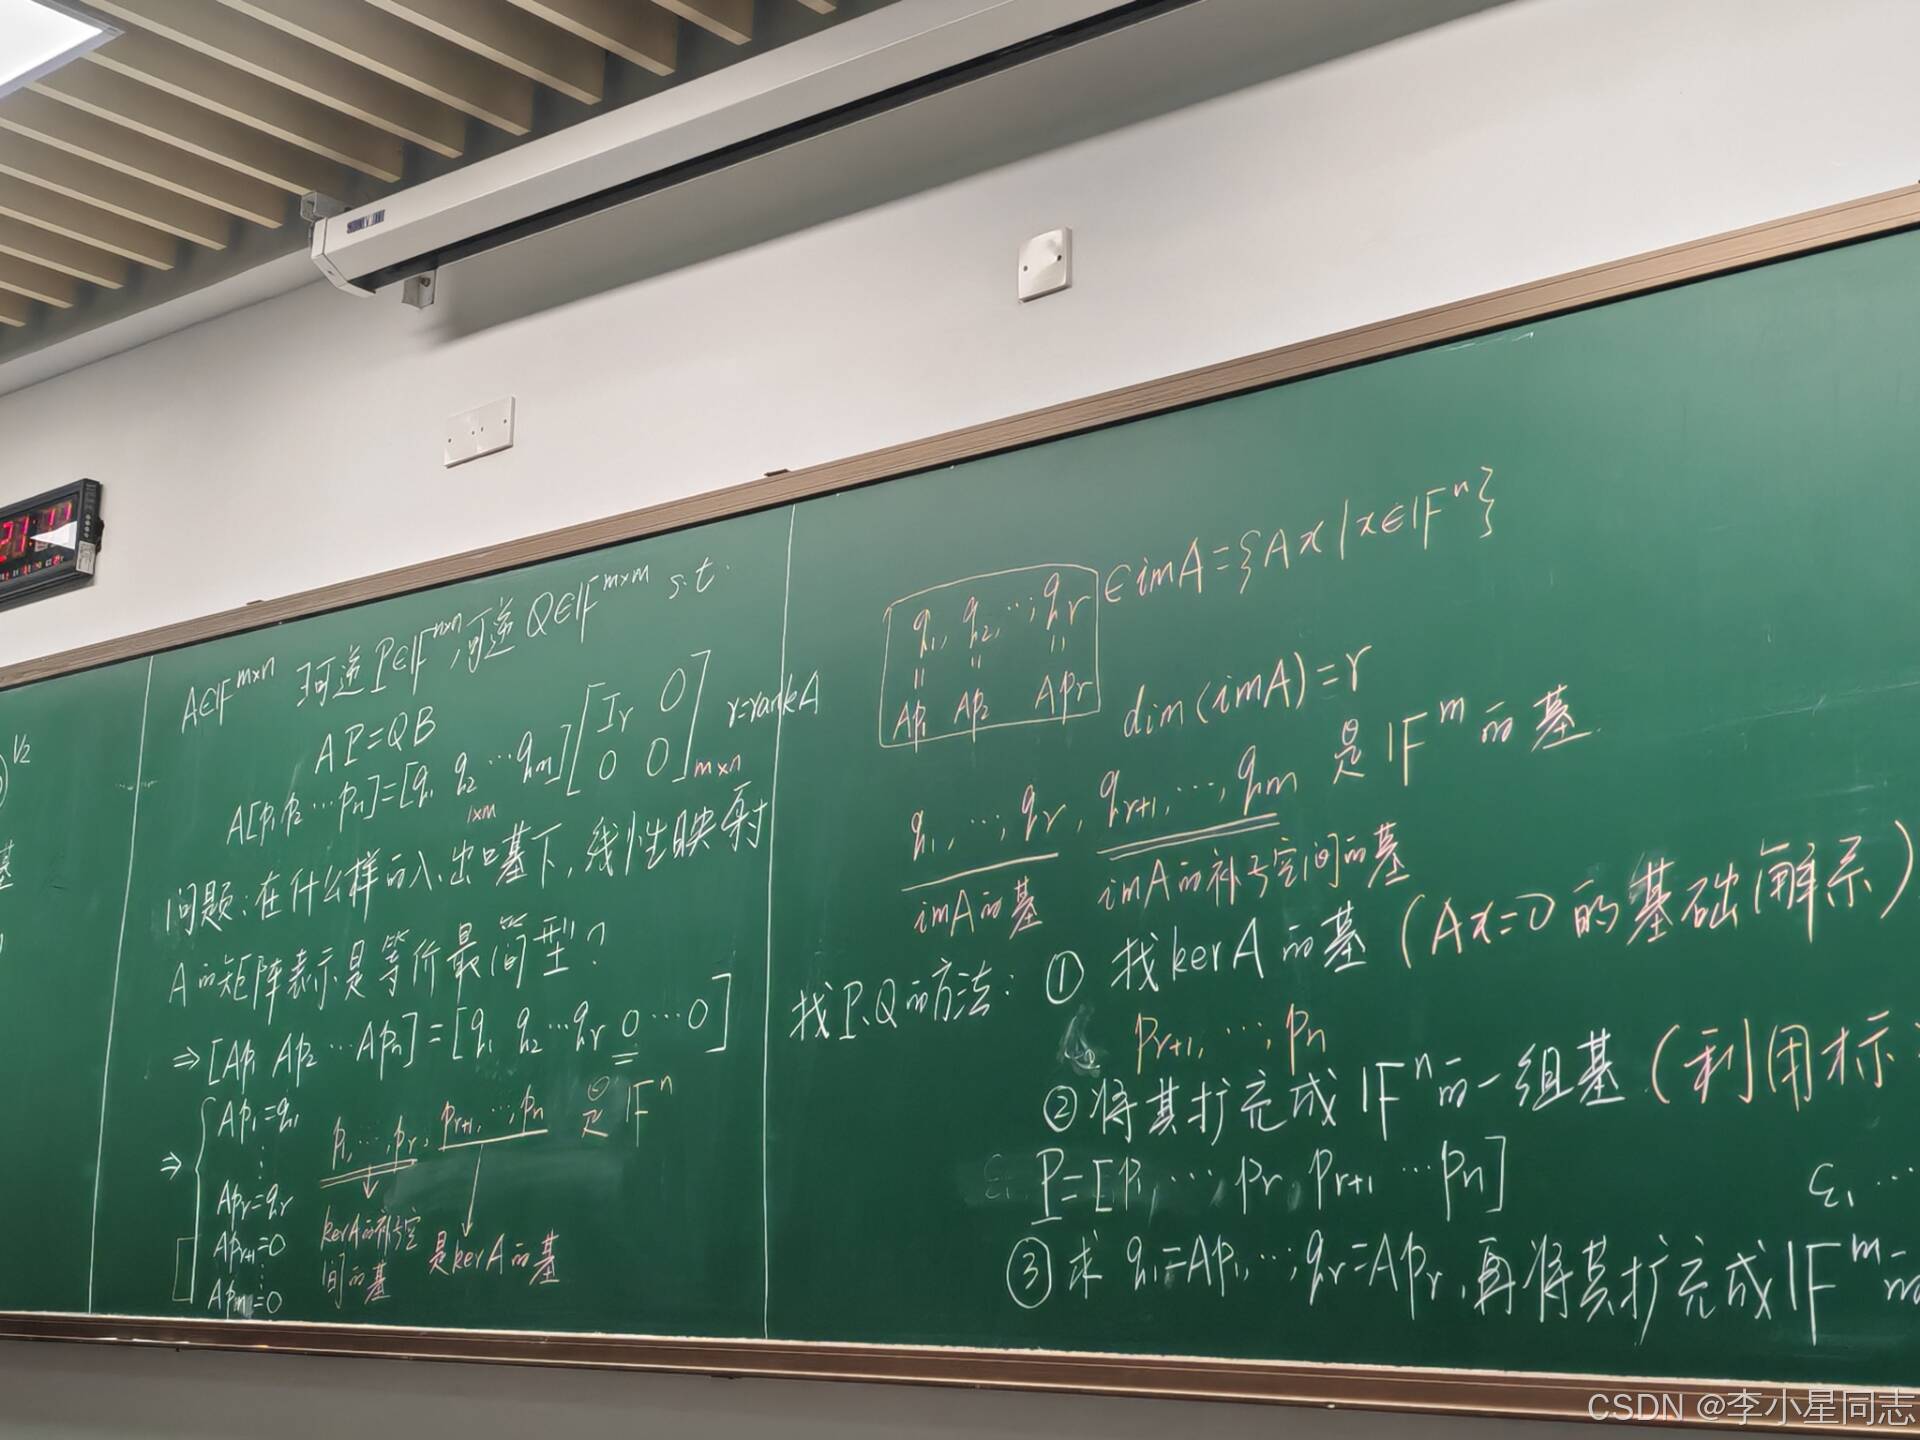 1/2
基
21:17
A∈F^{m×n} ∃可逆P∈F^{n×n},可逆Q∈F^{m×m} s.t.
AP=QB
A[p₁ p₂ ⋯ pₙ]=[q₁ q₂ ⋯ qₘ][Iᵣ 0
0 0]m×n r=rankA
1×m
问题:在什么样的入、出口基下,线性映射
A的矩阵表示是等价最简型?
⇒[Ap₁ Ap₂ ⋯Apₙ]=[q₁ q₂ ⋯qᵣ 0 ⋯ 0]
⇒{Ap₁=q₁
⋮
Apᵣ=qᵣ
Apᵣ₊₁=0
⋮
Apₙ=0
p₁,⋯,pᵣ,pᵣ₊₁,⋯,pₙ 是 Fⁿ
kerA的补子空
间的基
是kerA的基
q₁, q₂,⋯,qᵣ ∈imA={Ax|x∈Fⁿ}
Ap₁ Ap₂ Apᵣ
dim(imA)=r
q₁,⋯,qᵣ,qᵣ₊₁,⋯,qₘ 是Fᵐ的基.
imA的基 imA的补子空间的基
找P、Q的方法: ① 找kerA的基(Ax=0的基础解系)
pᵣ₊₁,⋯,pₙ
②将其扩充成Fⁿ的一组基(利用标
P=[p₁,⋯,pᵣ,pᵣ₊₁ ⋯pₙ] ε₁⋯
③求 q₁=Ap₁,⋯,qᵣ=Apᵣ,再将其扩充成Fᵐ的
CSDN @李小星同志